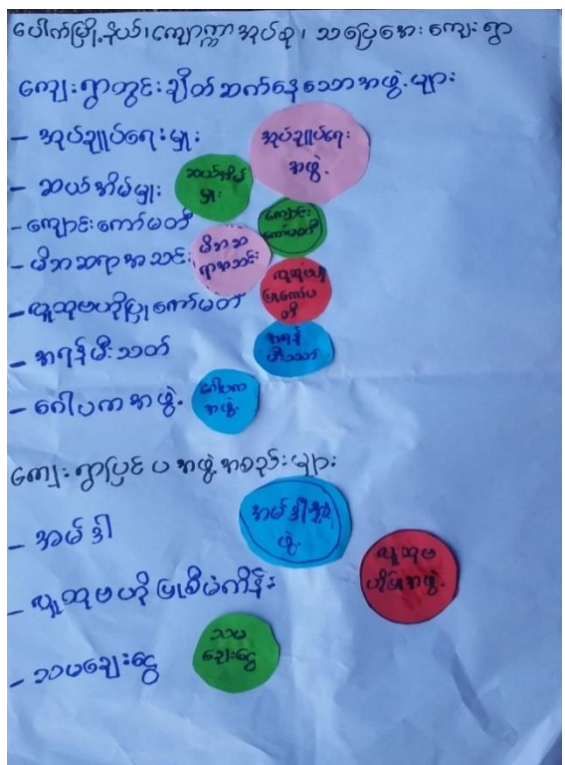 ပေါက်မြို့နယ်၊ ကျောက္ကာအုပ်စု ၊ သပြေအေး ကျေးရွာ
ကျေးရွာတွင်းချိတ်ဆက်နေသောအဖွဲ့များ
– အုပ်ချုပ်ရေးမှူး
အုပ်ချုပ်ရေး
အဖွဲ့
– ဆယ်အိမ်မှူး
ဆယ်အိမ်
မှူး
– ကျောင်းကော်မတီ
ကျောင်း
ကော်မတီ
– မိဘဆရာအသင်း
မိဘဆ
ရာအသင်း
– လူထုဗဟိုပြုကော်မတီ
လူထုဗဟို
ပြုကော်မ
တီ
– အရန်မီးသတ်
အရန်
မီးသတ်
– ဂေါပကအဖွဲ့
ဂေါပက
အဖွဲ့
ကျေးရွာပြင်ပ အဖွဲ့အစည်းများ
– အမ်ဒါ
အမ်ဒါ
ဖွဲ့
– လူထုဗဟိုပြုစီမံကိန်း
လူထုဗ
ဟိုပြုအဖွဲ့
– သမချေးငွေ
သမ
ချေးငွေ